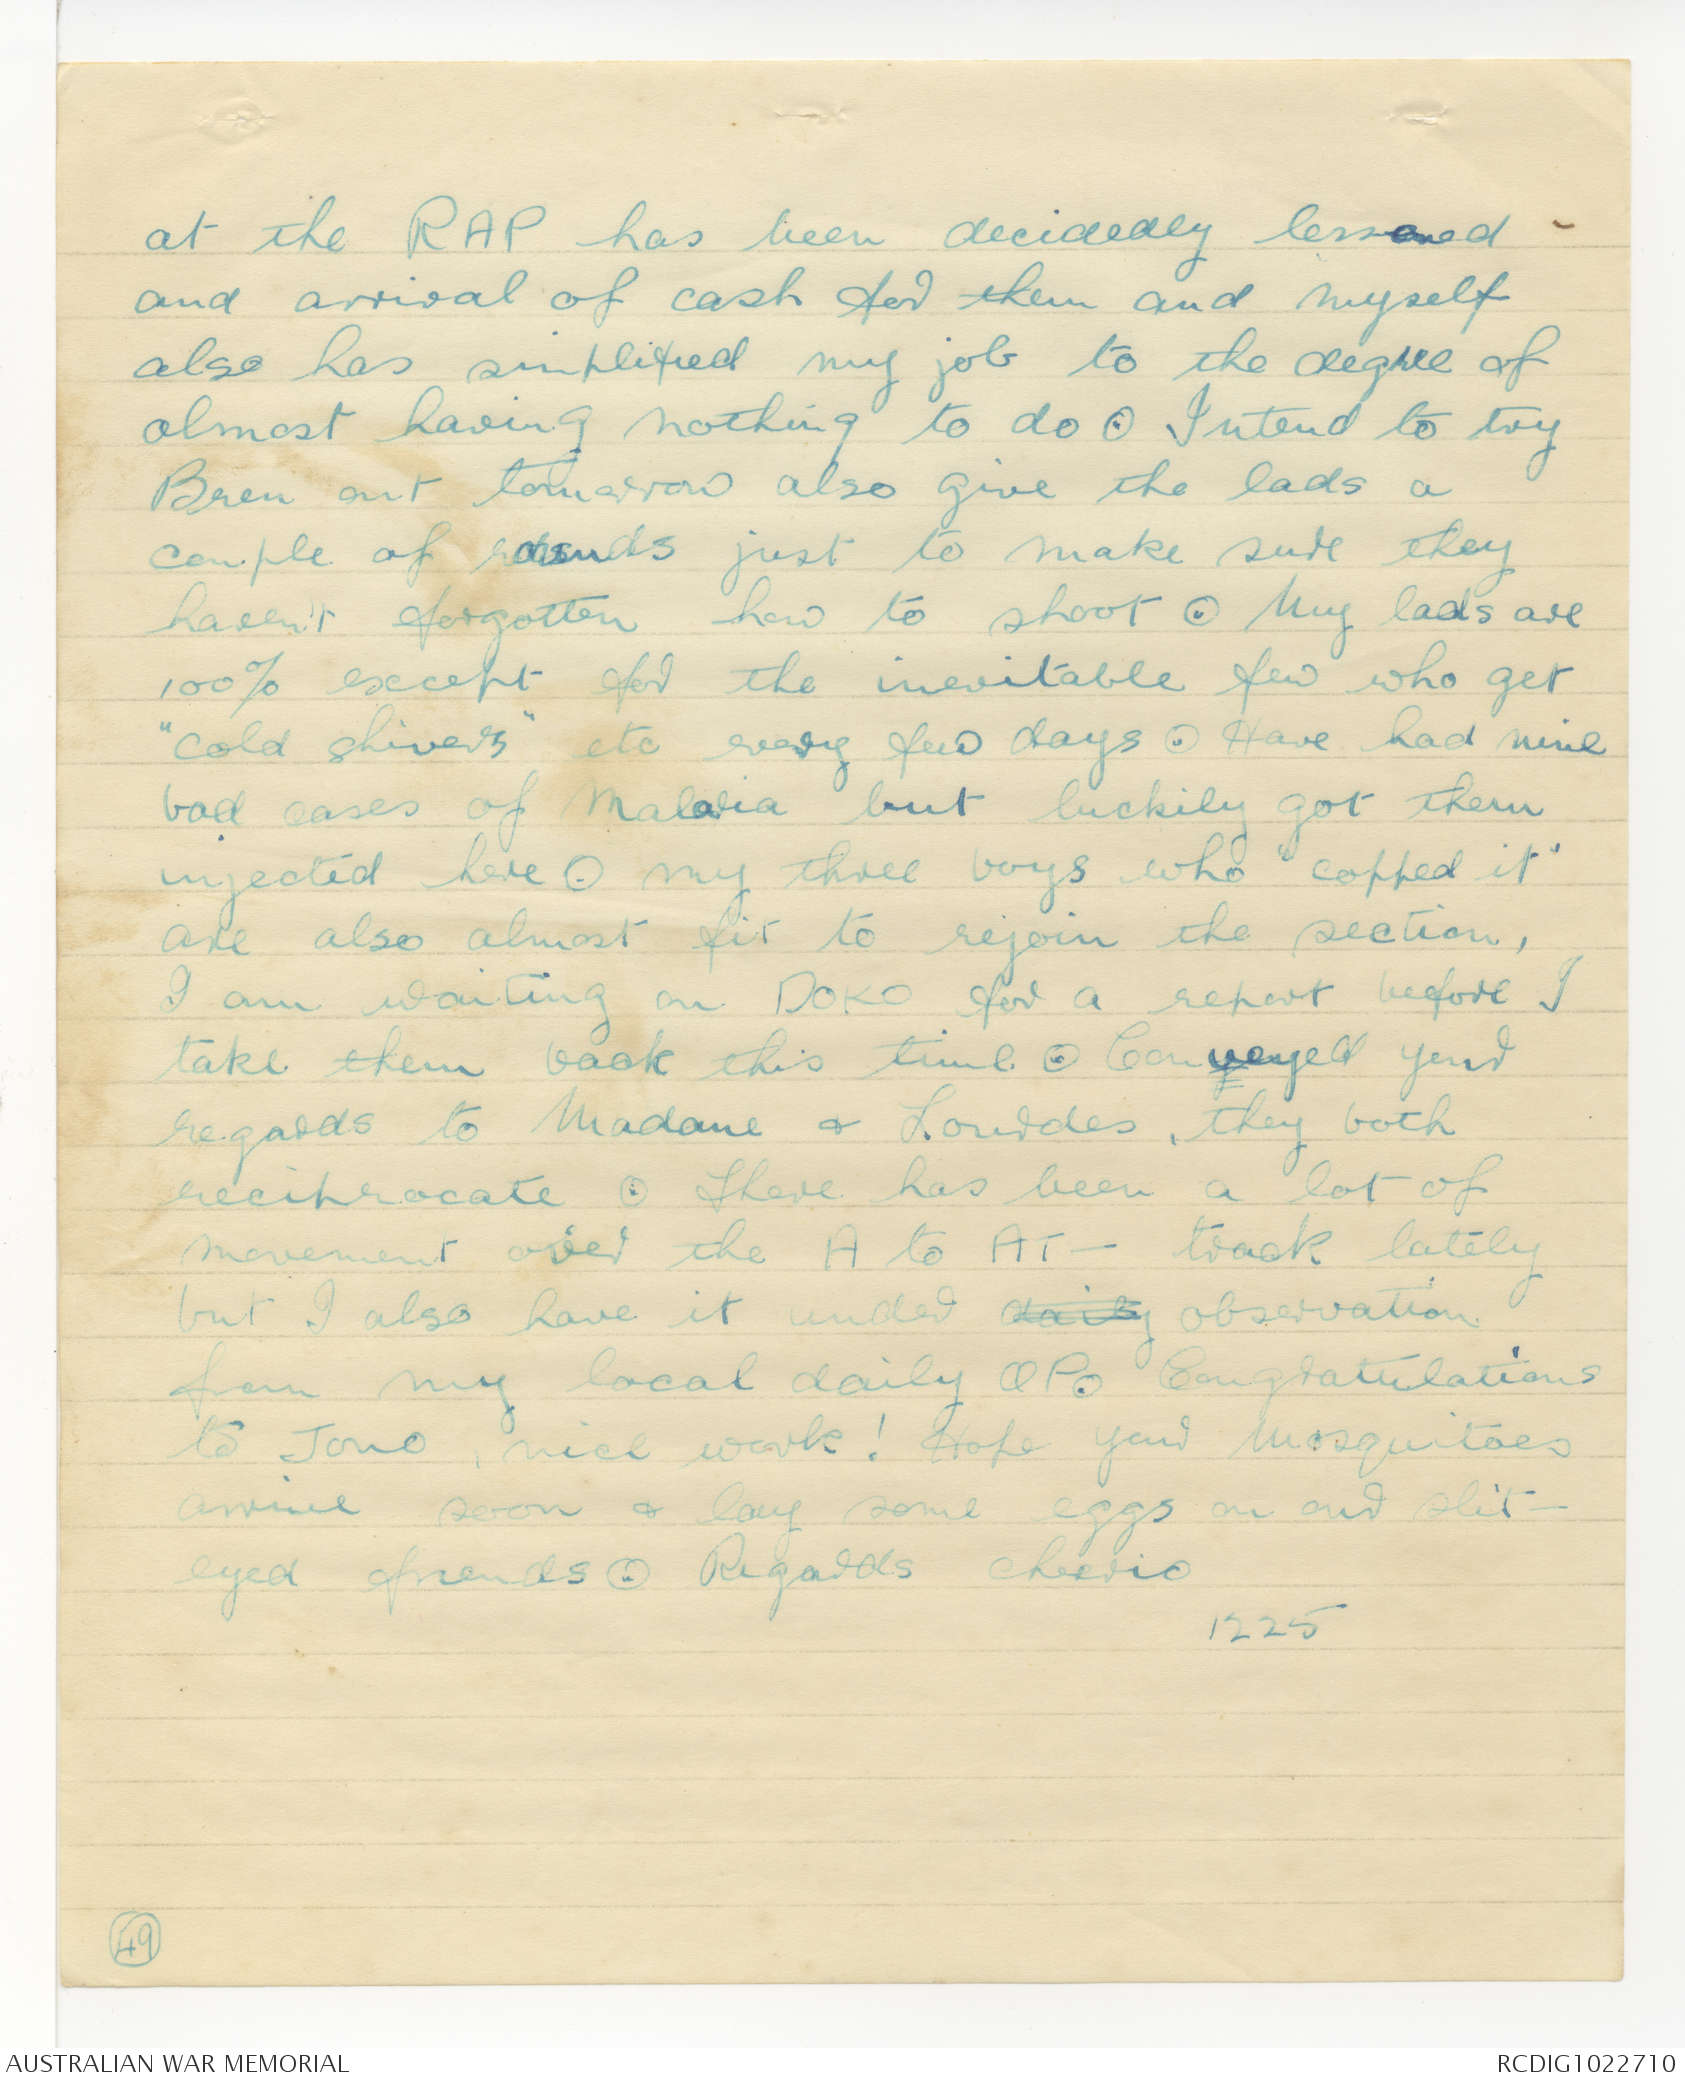 at the RAP has been decidedly lessened
and arrival of cash for them and myself
also has simplified my job to the degree of
almost having nothing to do ⊙ Intend to try
Bren out tomorrow also give the lads a
couple of rounds just to make sure they
haven't forgotten how to shoot ⊙ My lads are
100% except for the inevitable few who get
"cold shivers" etc every few days ⊙ Have had nine
bad cases of Malaria but luckily got them
injected here ⊙ my three boys who "copped it"
are also almost fit to rejoin the section,
I am waiting on DOKO for a report before I
take them back this time ⊙ Conveyed your
regards to Madame & Lourdes, they both
reciprocate ⊙ There has been a lot of
movement over the A to AT- track lately
but I also have it under daily observation
from my local daily OP⊙ Congratulations
to Jono, nice work! Hope your Mosquitoes
arrive soon & lay some eggs on our slit-
eyed friends ⊙ Regards cheerio
1225
49
AUSTRALIAN WAR MEMORIAL
RCDIG1022710